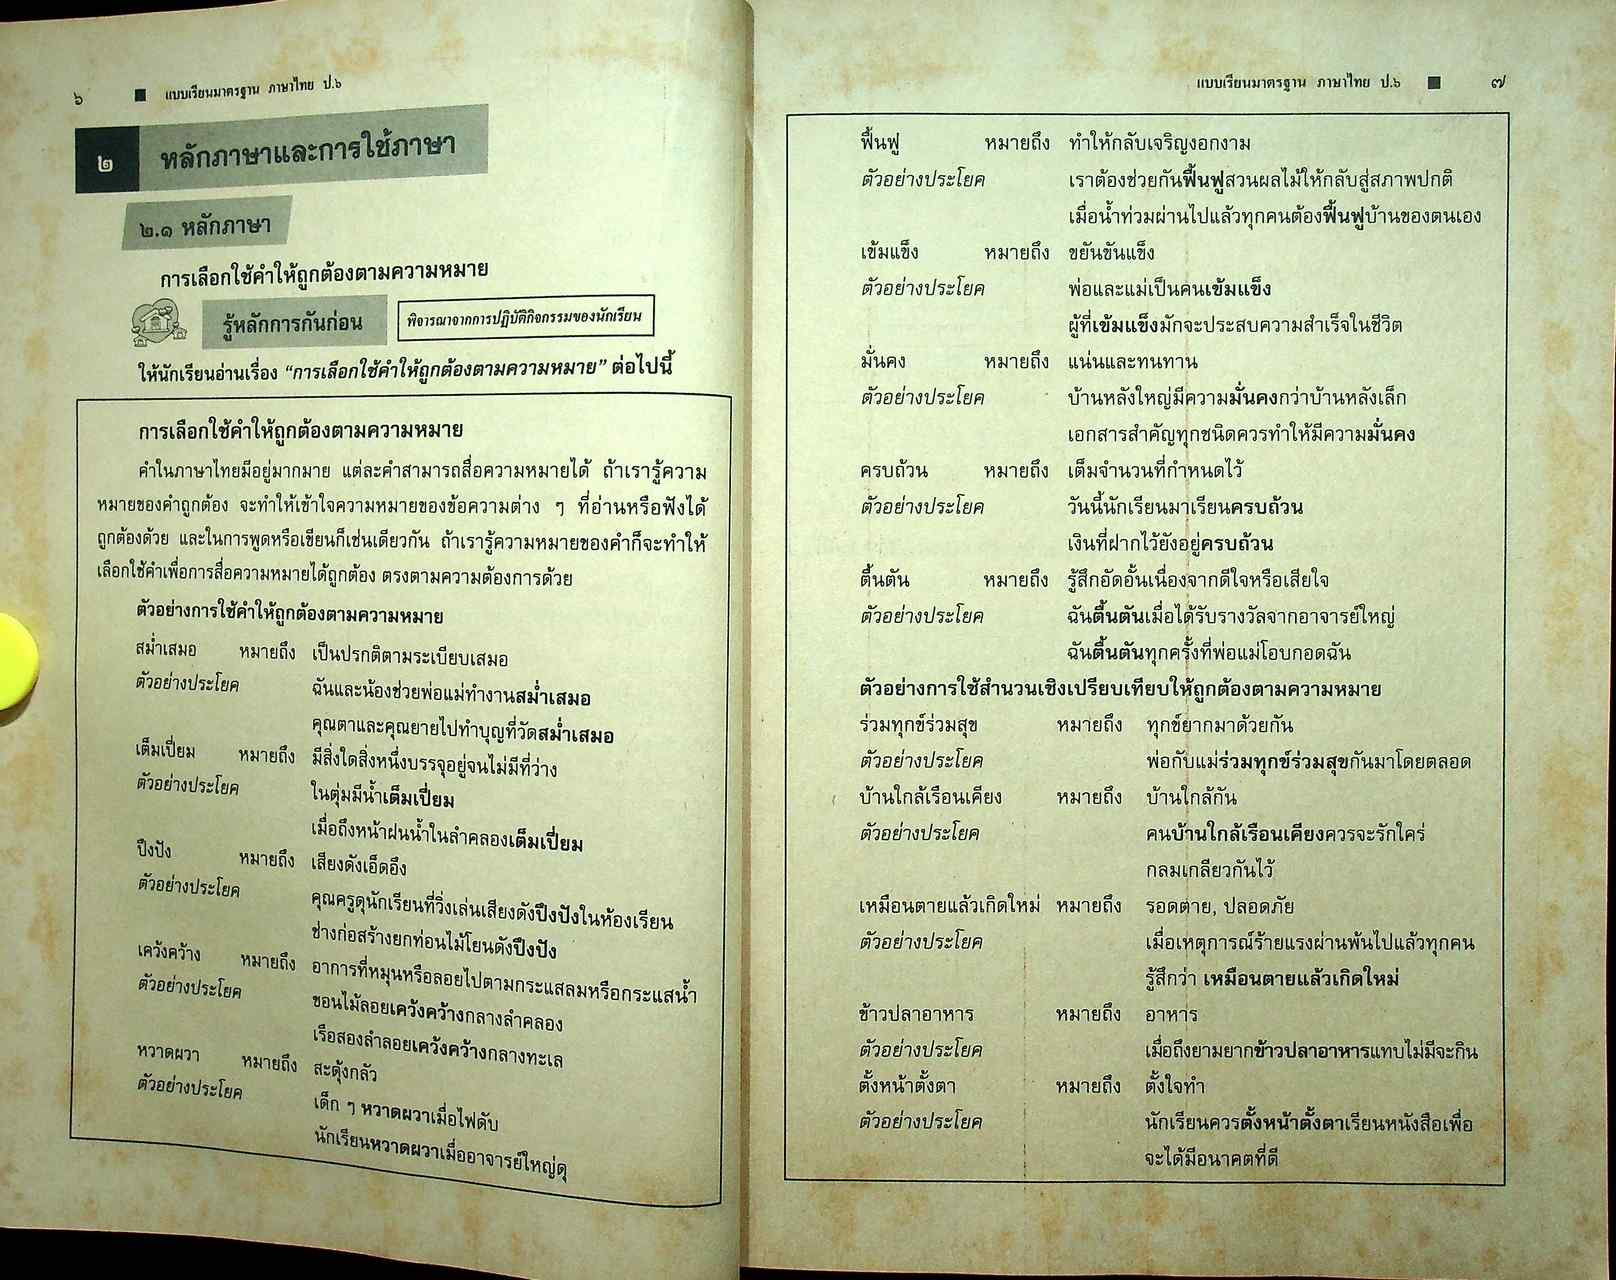 ๖ ■ แบบเรียนมาตรฐาน ภาษาไทย ป.๖
๒ หลักภาษาและการใช้ภาษา
๒.๑ หลักภาษา
การเลือกใช้คำให้ถูกต้องตามความหมาย
รู้หลักการกันก่อน พิจารณาจากการปฏิบัติกิจกรรมของนักเรียน
ให้นักเรียนอ่านเรื่อง “การเลือกใช้คำให้ถูกต้องตามความหมาย” ต่อไปนี้
การเลือกใช้คำให้ถูกต้องตามความหมาย
คำในภาษาไทยมีอยู่มากมาย แต่ละคำสามารถสื่อความหมายได้ ถ้าเรารู้ความ
หมายของคำถูกต้อง จะทำให้เข้าใจความหมายของข้อความต่าง ๆ ที่อ่านหรือฟังได้
ถูกต้องด้วย และในการพูดหรือเขียนก็เช่นเดียวกัน ถ้าเรารู้ความหมายของคำก็จะทำให้
เลือกใช้คำเพื่อการสื่อความหมายได้ถูกต้อง ตรงตามความต้องการด้วย
ตัวอย่างการใช้คำให้ถูกต้องตามความหมาย
สม่ำเสมอ หมายถึง เป็นปรกติตามระเบียบเสมอ
ตัวอย่างประโยค ฉันและน้องช่วยพ่อแม่ทำงานสม่ำเสมอ
คุณตาและคุณยายไปทำบุญที่วัดสม่ำเสมอ
เต็มเปี่ยม หมายถึง มีสิ่งใดสิ่งหนึ่งบรรจุอยู่จนไม่มีที่ว่าง
ตัวอย่างประโยค ในตุ่มมีน้ำเต็มเปี่ยม
เมื่อถึงหน้าฝนน้ำในลำคลองเต็มเปี่ยม
ปึงปัง หมายถึง เสียงดังเอ็ดอึง
ตัวอย่างประโยค คุณครูดุนักเรียนที่วิ่งเล่นเสียงดังปึงปังในห้องเรียน
ช่างก่อสร้างยกท่อนไม้โยนดังปึงปัง
เคว้งคว้าง หมายถึง อาการที่หมุนหรือลอยไปตามกระแสลมหรือกระแสน้ำ
ตัวอย่างประโยค ขอนไม้ลอยเคว้งคว้างกลางลำคลอง
เรือสองลำลอยเคว้งคว้างกลางทะเล
หวาดผวา หมายถึง สะดุ้งกลัว
ตัวอย่างประโยค เด็ก ๆ หวาดผวาเมื่อไฟดับ
นักเรียนหวาดผวาเมื่ออาจารย์ใหญ่ดุ
แบบเรียนมาตรฐาน ภาษาไทย ป.๖ ■ ๗
ฟื้นฟู หมายถึง ทำให้กลับเจริญงอกงาม
ตัวอย่างประโยค เราต้องช่วยกันฟื้นฟูสวนผลไม้ให้กลับสู่สภาพปกติ
เมื่อน้ำท่วมผ่านไปแล้วทุกคนต้องฟื้นฟูบ้านของตนเอง
เข้มแข็ง หมายถึง ขยันขันแข็ง
ตัวอย่างประโยค พ่อและแม่เป็นคนเข้มแข็ง
ผู้ที่เข้มแข็งมักจะประสบความสำเร็จในชีวิต
มั่นคง หมายถึง แน่นและทนทาน
ตัวอย่างประโยค บ้านหลังใหญ่มีความมั่นคงกว่าบ้านหลังเล็ก
เอกสารสำคัญทุกชนิดควรทำให้มีความมั่นคง
ครบถ้วน หมายถึง เต็มจำนวนที่กำหนดไว้
ตัวอย่างประโยค วันนี้นักเรียนมาเรียนครบถ้วน
เงินที่ฝากไว้ยังอยู่ครบถ้วน
ตื้นตัน หมายถึง รู้สึกอัดอั้นเนื่องจากดีใจหรือเสียใจ
ตัวอย่างประโยค ฉันตื้นตันเมื่อได้รับรางวัลจากอาจารย์ใหญ่
ฉันตื้นตันทุกครั้งที่พ่อแม่โอบกอดฉัน
ตัวอย่างการใช้สำนวนเชิงเปรียบเทียบให้ถูกต้องตามความหมาย
ร่วมทุกข์ร่วมสุข หมายถึง ทุกข์ยากมาด้วยกัน
ตัวอย่างประโยค พ่อกับแม่ร่วมทุกข์ร่วมสุขกันมาโดยตลอด
บ้านใกล้เรือนเคียง หมายถึง บ้านใกล้กัน
ตัวอย่างประโยค คนบ้านใกล้เรือนเคียงควรจะรักใคร่
กลมเกลียวกันไว้
เหมือนตายแล้วเกิดใหม่ หมายถึง รอดตาย, ปลอดภัย
ตัวอย่างประโยค เมื่อเหตุการณ์ร้ายแรงผ่านพ้นไปแล้วทุกคน
รู้สึกว่า เหมือนตายแล้วเกิดใหม่
ข้าวปลาอาหาร หมายถึง อาหาร
ตัวอย่างประโยค เมื่อถึงยามยากข้าวปลาอาหารแทบไม่มีจะกิน
ตั้งหน้าตั้งตา หมายถึง ตั้งใจทำ
ตัวอย่างประโยค นักเรียนควรตั้งหน้าตั้งตาเรียนหนังสือเพื่อ
จะได้มีอนาคตที่ดี